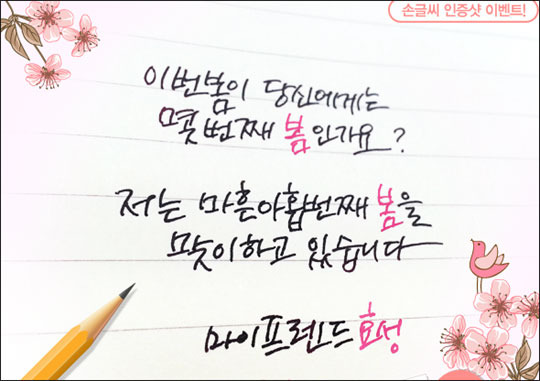 손글씨 인증샷 이벤트!
이번봄이 당신에게는
몇 번째 봄인가요?
저는 마흔아홉번째 봄을
맞이하고 있습니다
마이프렌드 효성